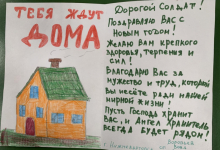 ТЕБЯ ЖДУТ
ДОМА
Дорогой Солдат!
Поздравляю Вас с
Новым годом!
Желаю Вам крепкого
здоровья, терпения и
сил!
Благодарю Вас за
мужество и труд, который
Вы несёте ради нашей
мирной жизни!
Пусть Господь хранит
Вас, и Ангел Хранитель
всегда будет рядом!